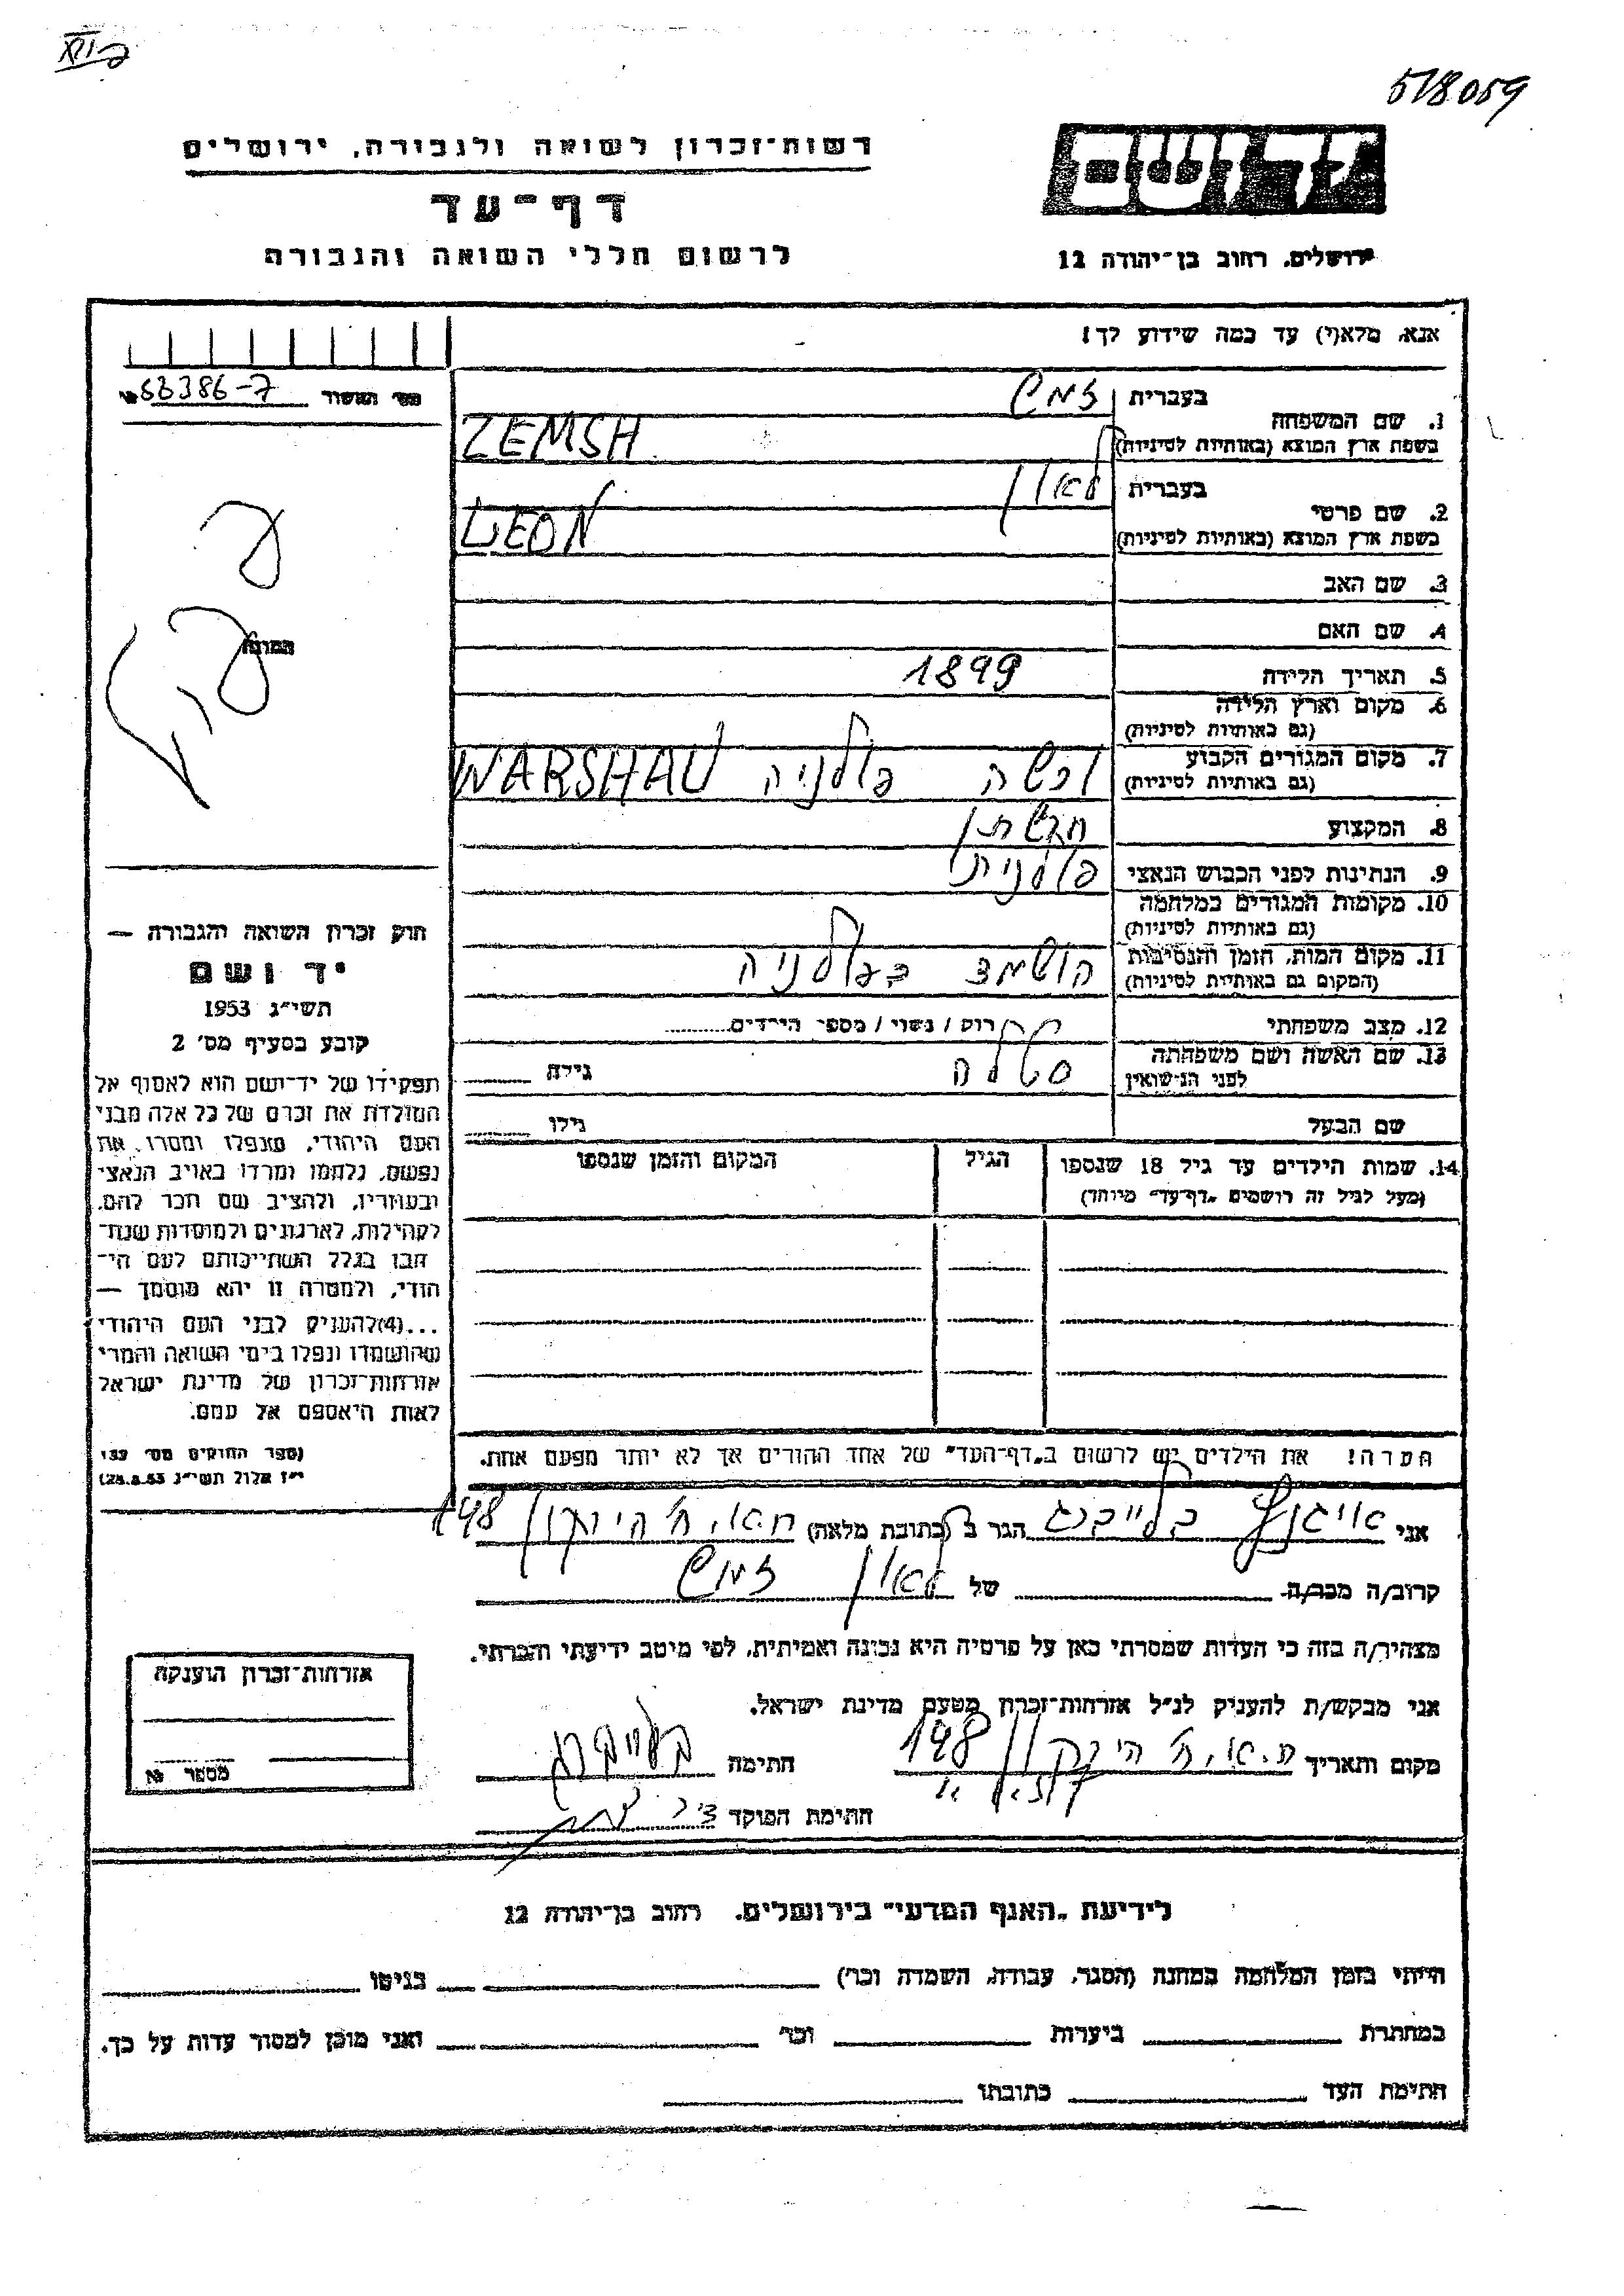 518059
רשות־זכרון לשואה ולגבורה, ירושלים
דף־עד
לרשום חללי השואה והגבורה
ידושם
ירושלים, רחוב בן־יהודה 12
אנא, מלא(י) עד כמה שידוע לך!
מס׳ האשור 63386-7
בעברית
1. שם המשפחה
בשפת ארץ המוצא (באותיות לטיניות)
זמש
ZEMSH
בעברית
2. שם פרטי
בשפת ארץ המוצא (באותיות לטיניות)
לאון
LEON
3. שם האב
4. שם האם
5. תאריך הלידה 1899
6. מקום וארץ הלידה
(גם באותיות לטיניות)
7. מקום המגורים הקבוע
(גם באותיות לטיניות)
ורשה פולניה WARSHAU
8. המקצוע חרשתן
9. הנתינות לפני הכבוש הנאצי פולנית
10. מקומות המגורים במלחמה
(גם באותיות לטיניות)
11. מקום המות, הזמן והנסיבות
(המקום גם באותיות לטיניות)
הושמד בפולניה
12. מצב משפחתי רוק / נשוי / מספר הילדים
13. שם האשה ושם משפחתה
לפני הנישואין
סטלה גילה
שם הבעל גילו
14. שמות הילדים עד גיל 18 שנספו
(מעל לגיל זה רושמים „דף־עד״ מיוחד)
הגיל
המקום והזמן שנספו
הערה! את הילדים יש לרשום ב„דף־העד״ של אחד ההורים אך לא יותר מפעם אחת.
התמונה
חוק זכרון השואה והגבורה —
יד ושם
תשי״ג 1953
קובע בסעיף מס׳ 2
תפקידו של יד־ושם הוא לאסוף אל
המולדת את זכרם של כל אלה מבני
העם היהודי, שנפלו ומסרו את
נפשם, נלחמו ומרדו באויב הנאצי
ובעוזריו, ולהציב שם וזכר להם,
לקהילות, לארגונים ולמוסדות שנח־
רבו בגלל השתייכותם לעם הי־
הודי, ולמטרה זו יהא מוסמך —
...(4)להעניק לבני העם היהודי
שהושמדו ונפלו בימי השואה והמרי
אזרחות־זכרון של מדינת ישראל
לאות היאספם אל עמם.
(ספר החוקים מס׳ 132
י״ז אלול תשי״ג 28.8.53)
אני בלייברג הגר ב (כתובת מלאה) ת.א. ח׳ הירקון 148
קרוב/ה מכר/ה של לאון זמש
מצהיר/ה בזה כי העדות שמסרתי כאן על פרטיה היא נכונה ואמיתית, לפי מיטב ידיעתי והכרתי.
אני מבקש/ת להעניק לנ״ל אזרחות־זכרון מטעם מדינת ישראל.
מקום ותאריך ת.א. ח׳ הירקון 148 חתימה
חתימת הפוקד
אזרחות־זכרון הוענקה
מספר №
לידיעת „האגף המדעי״ בירושלים, רחוב בן־יהודה 12
הייתי בזמן המלחמה במחנה (הסגר, עבודה, השמדה וכו׳) בגיטו
במחתרת ביערות וכו׳ ואני מוכן למסור עדות על כך.
חתימת העד כתובתו